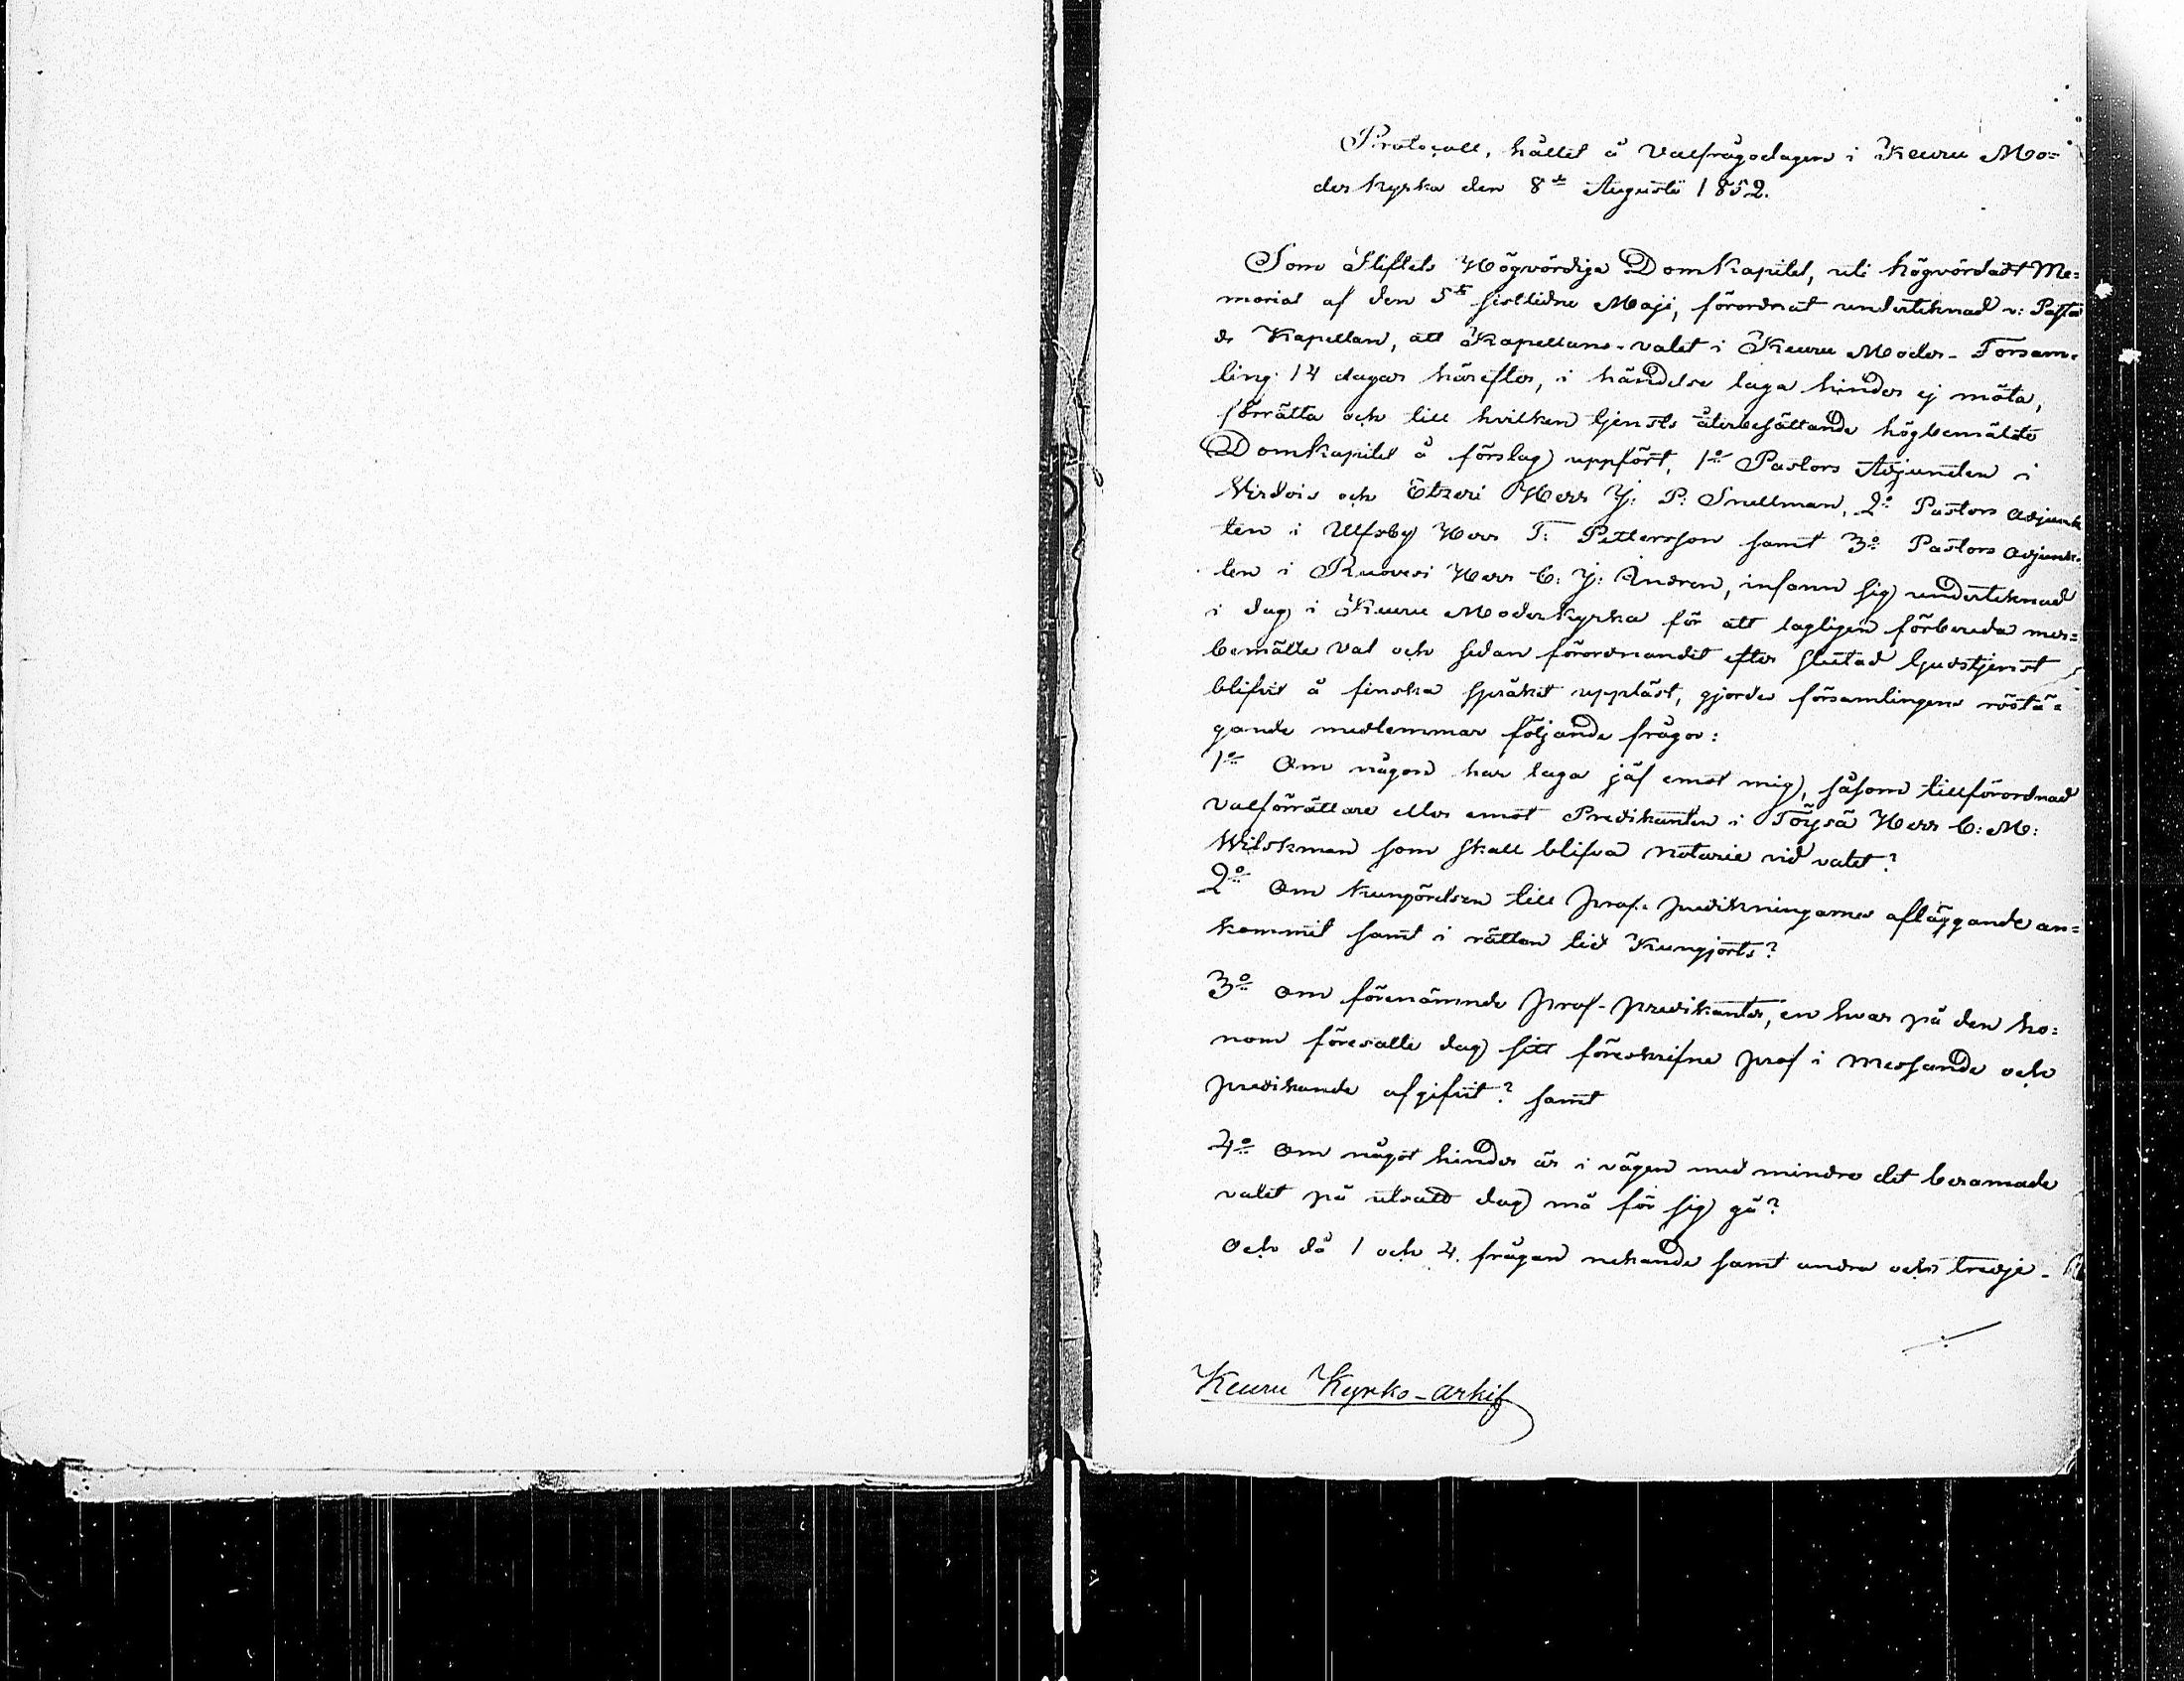 Protocoll, hållet å Valfrågodagen i Keuru Mo=
der kyrka den 8de Augusti 1852.
Som Stiftets Högvördiga DomKapitel, uti högvördadt Me=
morial af den 5te sistlidne Maji, förordnat undertecknad v: Pastor
& Kapellan, att Kapellans-valet i Keuru Moder-Försam=
ling 14 dagar härefter, i händelse laga hinder ej möta,
förrätta och till hvilken tjensts återbesättande högbemälte
DomKapitel å förslag uppfört, 1o Pastors Adjuncten i
Virdois och Etseri Herr J: P: Snellman, 2o Pastors adjunk
ten i Ulfsby Herr T: Pettersson samt 3o Pastors adjunk=
ten i Ruovesi Herr C: J: Andren, infann sig undertecknad
i dag i Keuru Moderkyrka för att lagligen förbereda mer=
bemälte val och sedan förordnandet efter slutad gudstjenst
blifvit å finska språket uppläst, gjordes församlingens röstä=
gande medlemmar följande frågor:
1o Om någon har laga jäf emot mig, såsom tillförordnad
valförrättare eller emot Predikanten i Töysä Herr C: M:
Wilskman som skall blifva notarie vid valet?
2o Om kungörelsen till prof-predikningarnes afläggande an=
kommit samt i rättan tid Kungjorts?
3o Om förenämnde prof-predikanter, en hvar på den ho=
nom föresatte dag sitt föreskrifne prof i messande och
predikande afgifvit? samt
4o Om något hinder är i vägen med mindre det beramade
valet på utsatt dag må för sig gå?
Och då 1 och 4. frågan nekande samt andra och tredje-
Keuru Kyrko-arkif